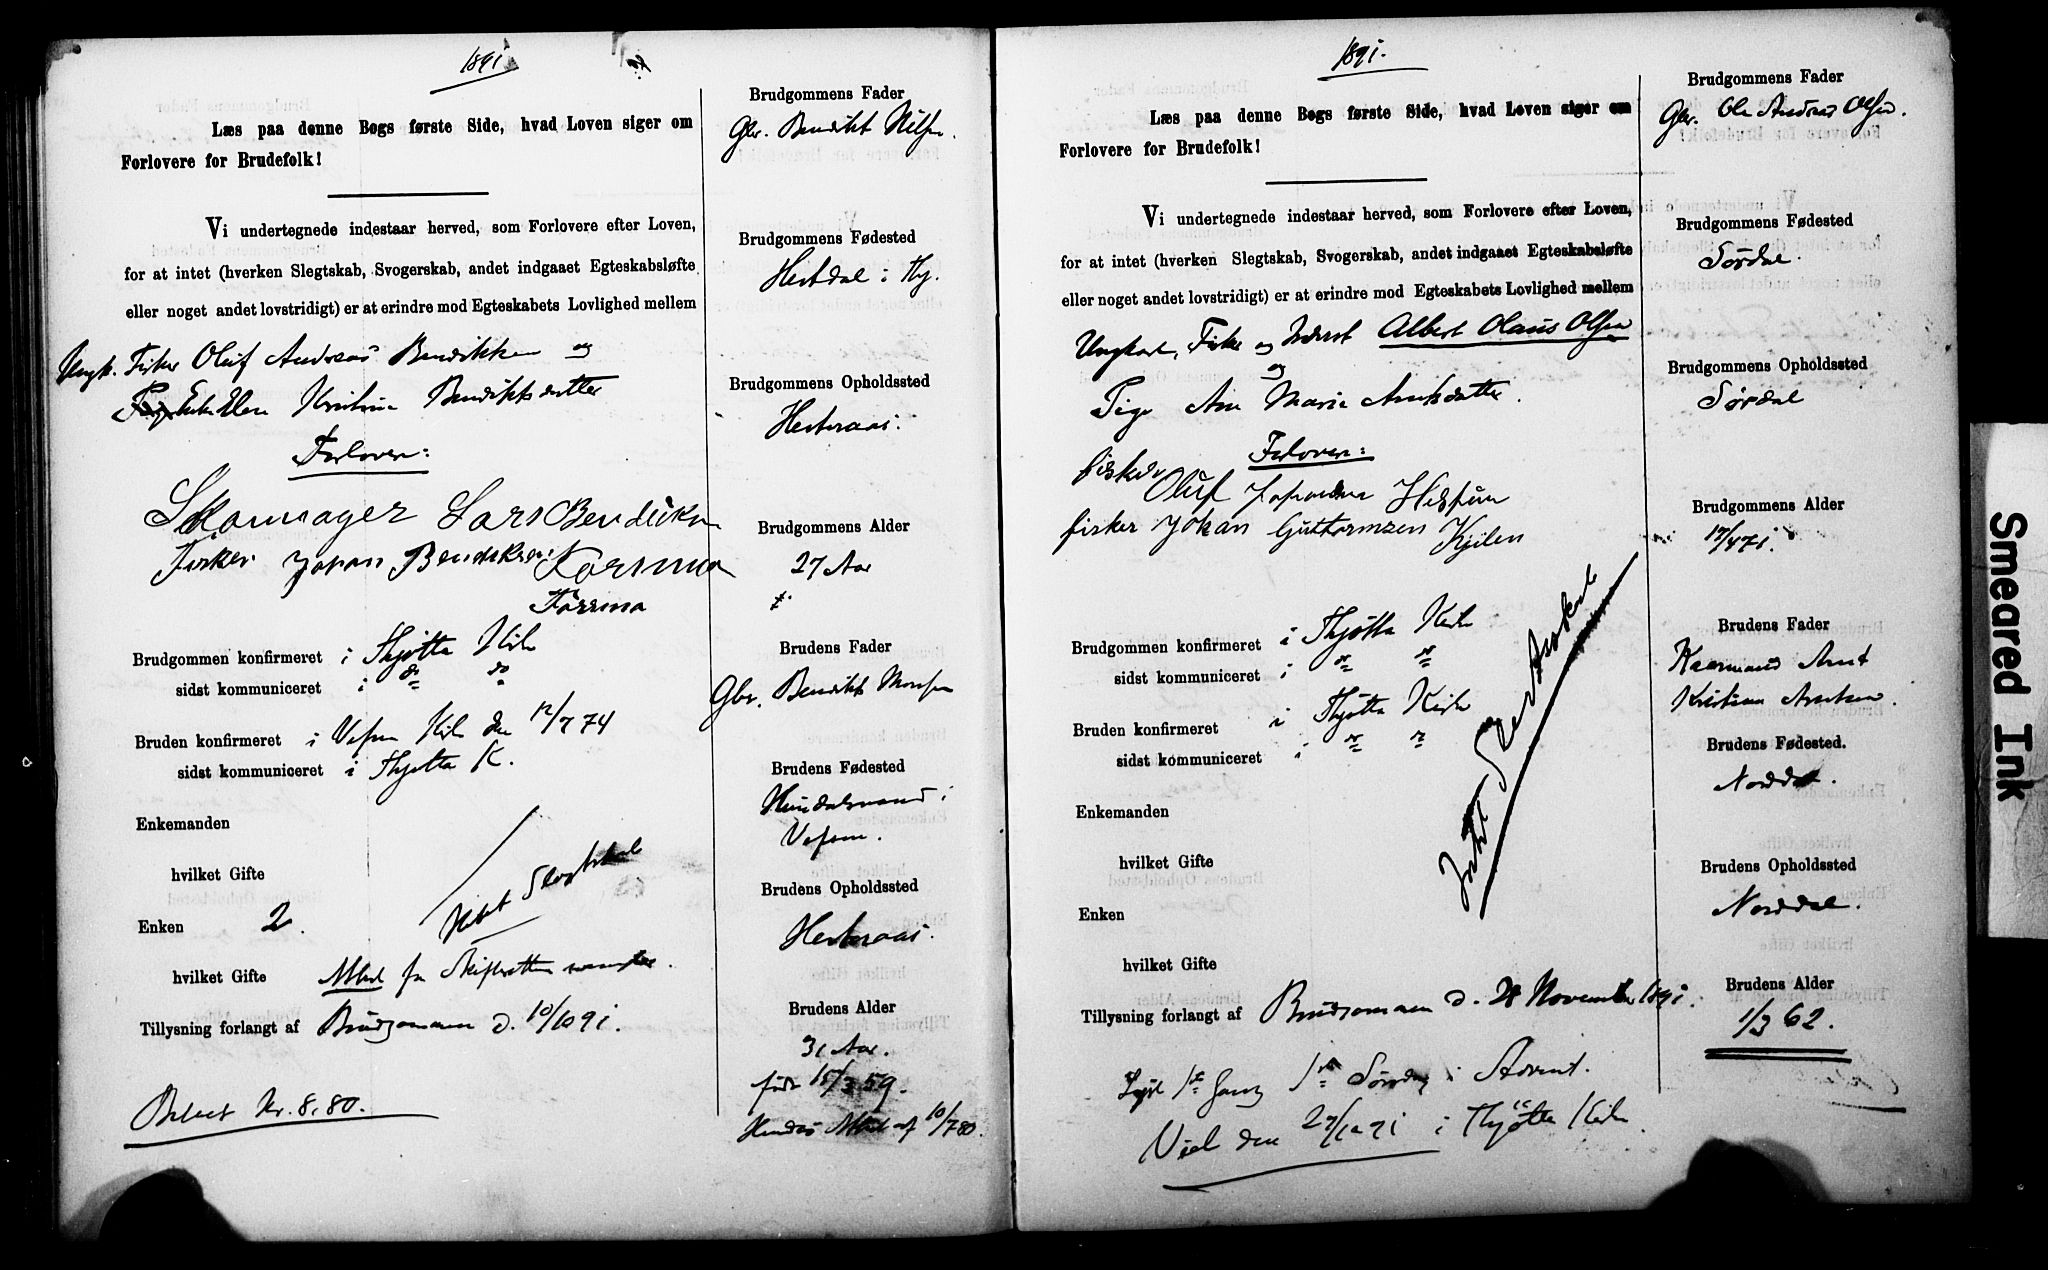 1891
Læs paa denne Bogs første Side, hvad Loven siger om
Forlovere for Brudefolk!
Vi undertegnede indestaar herved, som Forlovere efter Loven,
for at intet (hverken Slegtskab, Svogerskab, andet indgaaet Egteskabsløfte
eller noget andet lovstridigt) er at erindre mod Egteskabets Lovlighed mellem
Ungk. Fisker Oluf Andreas Bendiksen og
Enke Elen Kristine Bendiktsdatter
Forlovere:
Skomager Lars Bendiksen
Fisker Johan Bendiksen Forsmo
Forsmo
Brudgommen konfirmeret i Thjøtta Kirke
sidst kommuniceret i do do
Bruden konfirmeret i Vefsen Kirke den 12/7 74
sidst kommuniceret i Thjøtta K.
Enkemanden
hvilket Gifte
Intet Slegtskab
Enken 2
hvilket Gifte Attest fra Skifteretten
Tillysning forlangt af Brudgommen d. 10/10 91.
Betalt Kr. 8,80.
Brudgommens Fader
Gbr. Bendikt Nilsen.
Brudgommens Fødested
Hestdal i Thj.
Brudgommens Opholdssted
Hesteraas.
Brudgommens Alder
27 Aar
Brudens Fader
Gbr. Bendikt Monsen
Brudens Fødested
Hundalsvand i
Vefsen.
Brudens Opholdssted
Hesteraas.
Brudens Alder
31 Aar.
født 15/3 59.
Hendes Attest af 10/7 80.
1891.
Læs paa denne Bogs første Side, hvad Loven siger om
Forlovere for Brudefolk!
Vi undertegnede indestaar herved, som Forlovere efter Loven,
for at intet (hverken Slegtskab, Svogerskab, andet indgaaet Egteskabsløfte
eller noget andet lovstridigt) er at erindre mod Egteskabets Lovlighed mellem
Ungkarl, Fisker og Inderst Albert Olaus Olsen
og
Pige Ane Marie Arntsdatter.
Forlovere:
fisker Oluf Johansen Hestun
fisker Johan Guttormsen Kjilen
Brudgommen konfirmeret i Thjøtta Kirke
sidst kommuniceret i
Bruden konfirmeret i Thjøtta Kirke
sidst kommuniceret i
Intet Slegtskab
Enkemanden
hvilket Gifte
Enken
hvilket Gifte
Tillysning forlangt af Brudgommen d. 28 November 1891.
Lyst 1ste Gang 1ste Søndag i Advent.
Viet den 27/12 91 i Thjøtta Kirke.
Brudgommens Fader
Gbr. Ole Andreas Olsen.
Brudgommens Fødested
Sørdal.
Brudgommens Opholdssted
Sørdal
Brudgommens Alder
17/4 71.
Brudens Fader
Kaarmand Arnt
Kristian Arntsen.
Brudens Fødested.
Norddal.
Brudens Opholdssted
Norddal.
Brudens Alder
1/3 62.
Smeared Ink